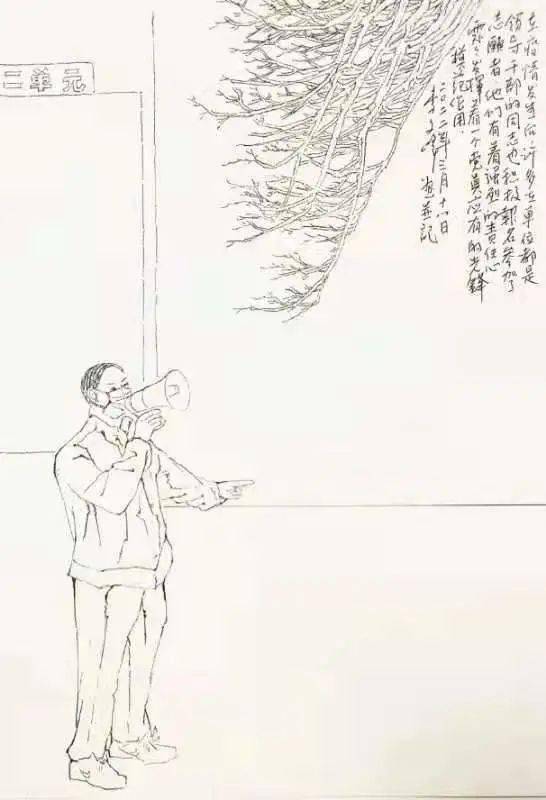 二单元
在疫情发生后许多在單位都是
领导干部的同志也积极報名参加了
志願者,他们有着强烈的责任心
處々发揮着一个党員应有的先鋒
模范作用.
二〇二二年三月十八日
並記